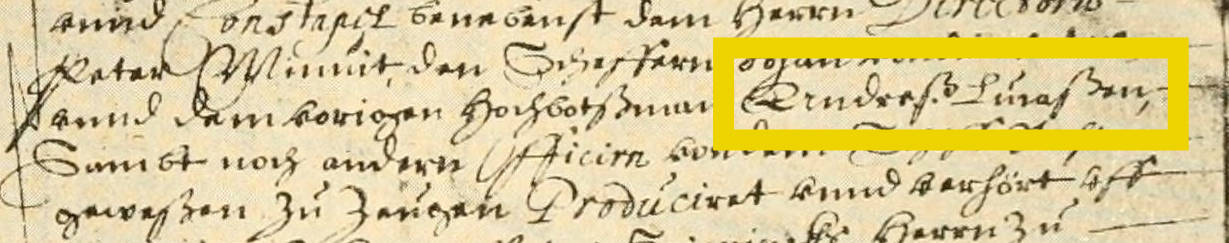 vnnd Constapel benebenst dem Herrn Directorn
Peter Minuit, den Scheffern Johan
vnnd dem vorigen Hochbotßman Andreß Lucaßen,
Sambt noch andern Officirn von dem
geweßen zu Zeugen Produciret vnnd verhört vff
Herrn zu